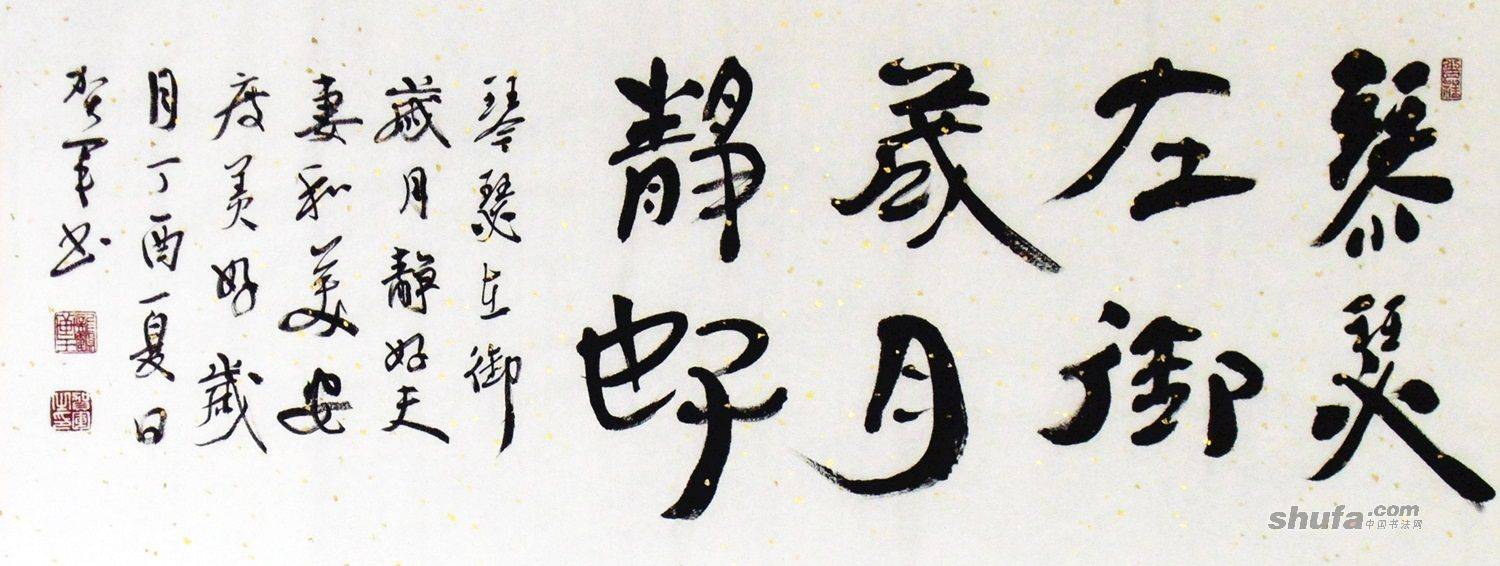 琴瑟
在御
歲月
靜好
琴瑟在御
歲月靜好夫
妻和美安
度美好歲
月丁酉夏日
賀軍书
shufa.com
中国书法网